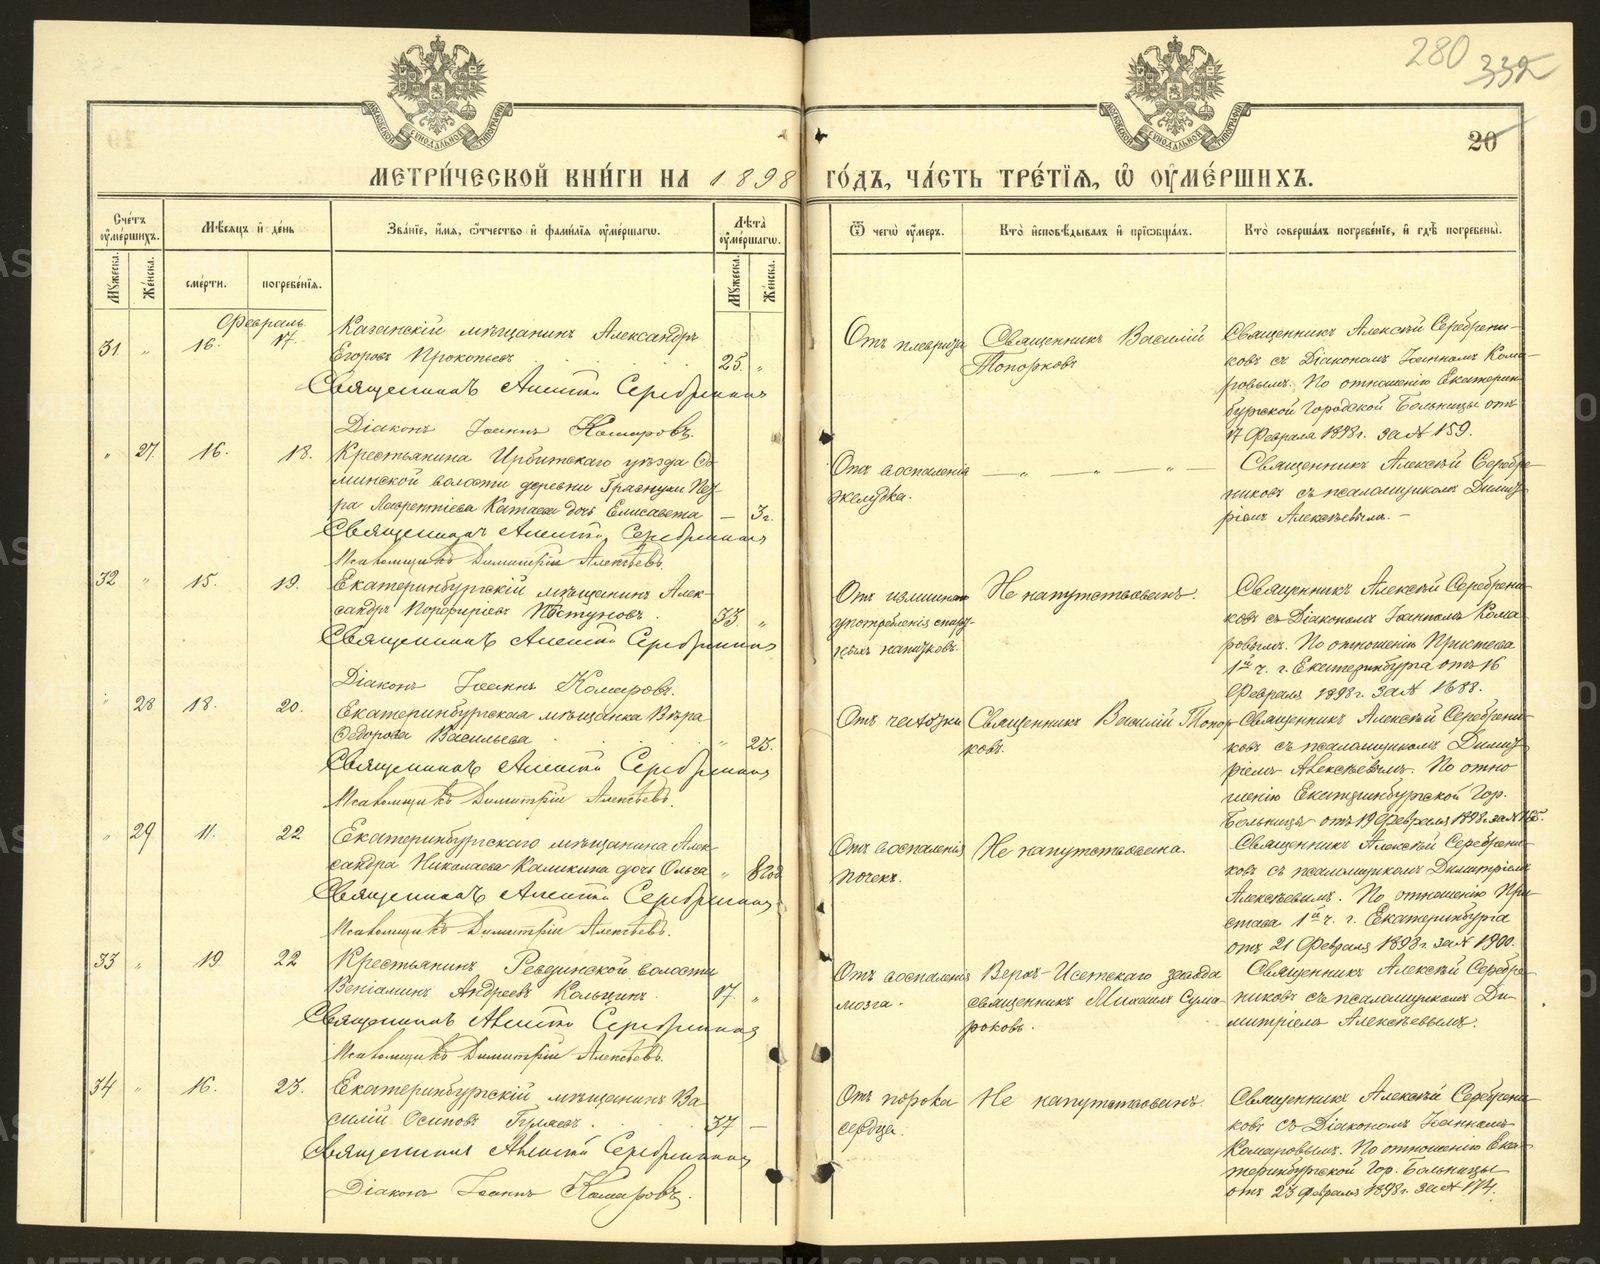 280 332
МОСКОВСКОЙ СѴНОДАЛЬНОЙ ТИПОГРАФІИ
МОСКОВСКОЙ СѴНОДАЛЬНОЙ ТИПОГРАФІИ
20
МЕТРИ́ЧЕСКОЙ КНИ́ГИ НА 1898
ГО́ДЪ, ЧА́СТЬ ТРЕ́ТІЯ, Ѡ ОУМЕ́РШИХЪ.
Сче́тъ оумершихъ.
Мѣсяцъ и день
Зва́ніе, и́мя, о́тчество и фами́лія оуме́ршагѡ.
Лѣта̀ оумершагѡ.
Ѿ чегѡ̀ оумеръ.
Кто̀ исповѣдывалъ и пріобщалъ.
Кто̀ совершалъ погребеніе, и гдѣ погребены̀.
Мужеска. Женска.
смерти. погребенія.
Мужеска. Женска.
Февраль
31 " 16. 17.
Казанскій мѣщанинъ Александръ
Егоровъ Прокопьевъ 25. "
Священникъ Алексѣй Серебренниковъ
Діаконъ Іоаннъ Комаровъ.
Отъ плеврита
Священникъ Василій
Топорковъ
Священникъ Алексѣй Серебрени-
ковъ съ Діакономъ Іоанномъ Кома-
ровымъ. По отношенію Екатерин-
бургской Городской Больницы отъ
17 Февраля 1898 г. за № 159.
" 27 16. 18.
Крестьянина Ирбитскаго уѣзда
минской волости деревни Грязнухи Пет-
ра Лаврентіева Катаева дочь Елисавета — 3 г.
Священникъ Алексѣй Серебренниковъ
Псаломщикъ Димитрій Алексѣевъ.
Отъ воспаленія
желудка.
— " — " — " —
Священникъ Алексѣй Серебре-
никовъ съ псаломщикомъ Димит-
ріемъ Алексѣевымъ. —
32 " 15. 19.
Екатеринбургскій мѣщанинъ Алек-
сандръ Порфирьевъ Пѣстуновъ 33 "
Священникъ Алексѣй Серебренниковъ
Діаконъ Іоаннъ Комаровъ.
Отъ излишняго
употребленія спирт-
ныхъ напитковъ.
Не напутствованъ.
Священникъ Алексѣй Серебрени-
ковъ съ Діакономъ Іоанномъ Кома-
ровымъ. По отношенію Пристава
1ой ч. г. Екатеринбурга отъ 16
Февраля 1898 г. за № 1688.
" 28 18. 20.
Екатеринбургская мѣщанка Вѣра
Ѳедорова Васильева " 23.
Священникъ Алексѣй Серебренниковъ
Псаломщикъ Димитрій Алексѣевъ.
Отъ чахотки
Священникъ Василій Топор-
ковъ.
Священникъ Алексѣй Серебрени-
ковъ съ псаломщикомъ Димит-
ріемъ Алексѣевымъ. По отно-
шенію Екатеринбургской Гор.
Больницы отъ 19 Февраля 1898 г. за №
" 29 11. 22
Екатеринбургскаго мѣщанина Алек-
сандра Николаева Калинина дочь Ольга " 8 год
Священникъ Алексѣй Серебренниковъ
Псаломщикъ Димитрій Алексѣевъ.
Отъ воспаленія
почекъ.
Не напутствована.
Священникъ Алексѣй Серебрени-
ковъ съ псаломщикомъ Димитріемъ
Алексѣевымъ. По отношенію При-
става 1ой ч. г. Екатеринбурга
отъ 21 Февраля 1898 г. за № 1900.
33 " 19 22
Крестьянинъ Ревдинской волости
Веніаминъ Андреевъ Кольцинъ. 17. "
Священникъ Алексѣй Серебренниковъ
Псаломщикъ Димитрій Алексѣевъ.
Отъ воспаленія
мозга.
Верхъ-Исетскаго завода
священникъ Михаилъ Сума-
роковъ.
Священникъ Алексѣй Серебре-
никовъ съ псаломщикомъ Ди-
митріемъ Алексѣевымъ.
34 " 16. 23.
Екатеринбургскій мѣщанинъ Ва-
силій Осиповъ 37 —
Священникъ Алексѣй Серебренниковъ
Діаконъ Іоаннъ Комаровъ.
Отъ порока
сердца.
Не напутствованъ.
Священникъ Алексѣй Серебрени-
ковъ съ Діакономъ Іоанномъ
Комаровымъ. По отношенію Ека-
теринбургской Гор. Больницы
отъ 23 Февраля 1898 г. за № 174.
METRIKI.GASO-URAL.RU